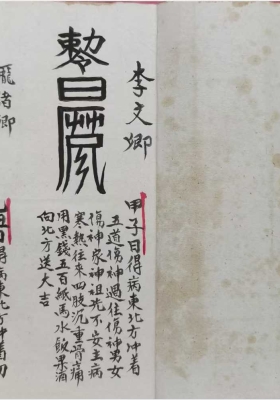 李文卿
甲子日得病東北方冲着
五道傷神過往傷神男女
傷神家神祖先不安主病
寒熱往來四肢沉重骨痛
用黑錢五百紙馬水飯果酒
向北方送大吉
卿
日得病東北方冲着